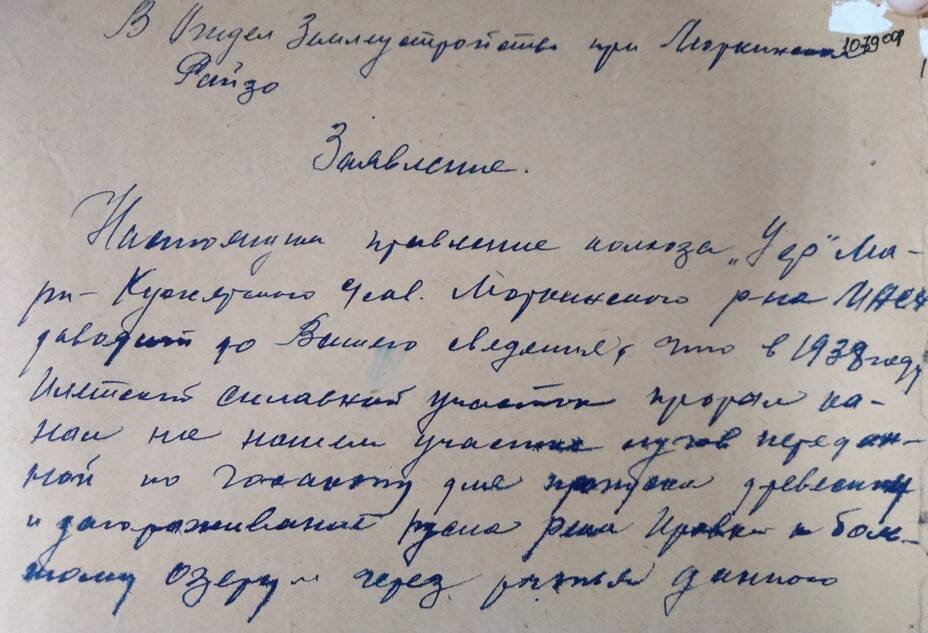 В Отдел Землеустройства при Моркинском
1079 об
Райзо
Заявление.
Настоящим правление колхоза „У ер" Ма-
ри-Кужнетского Моркинского р-на МАССР
доводит до Вашего сведения, что в 1938 году
Илетский сплавной участок прорыл ка-
нал на нашем участке лугов передан-
ной по Госакту для пропуска древесины
и загораживания русла реки Ировки к боль-
шому озеру и через данного